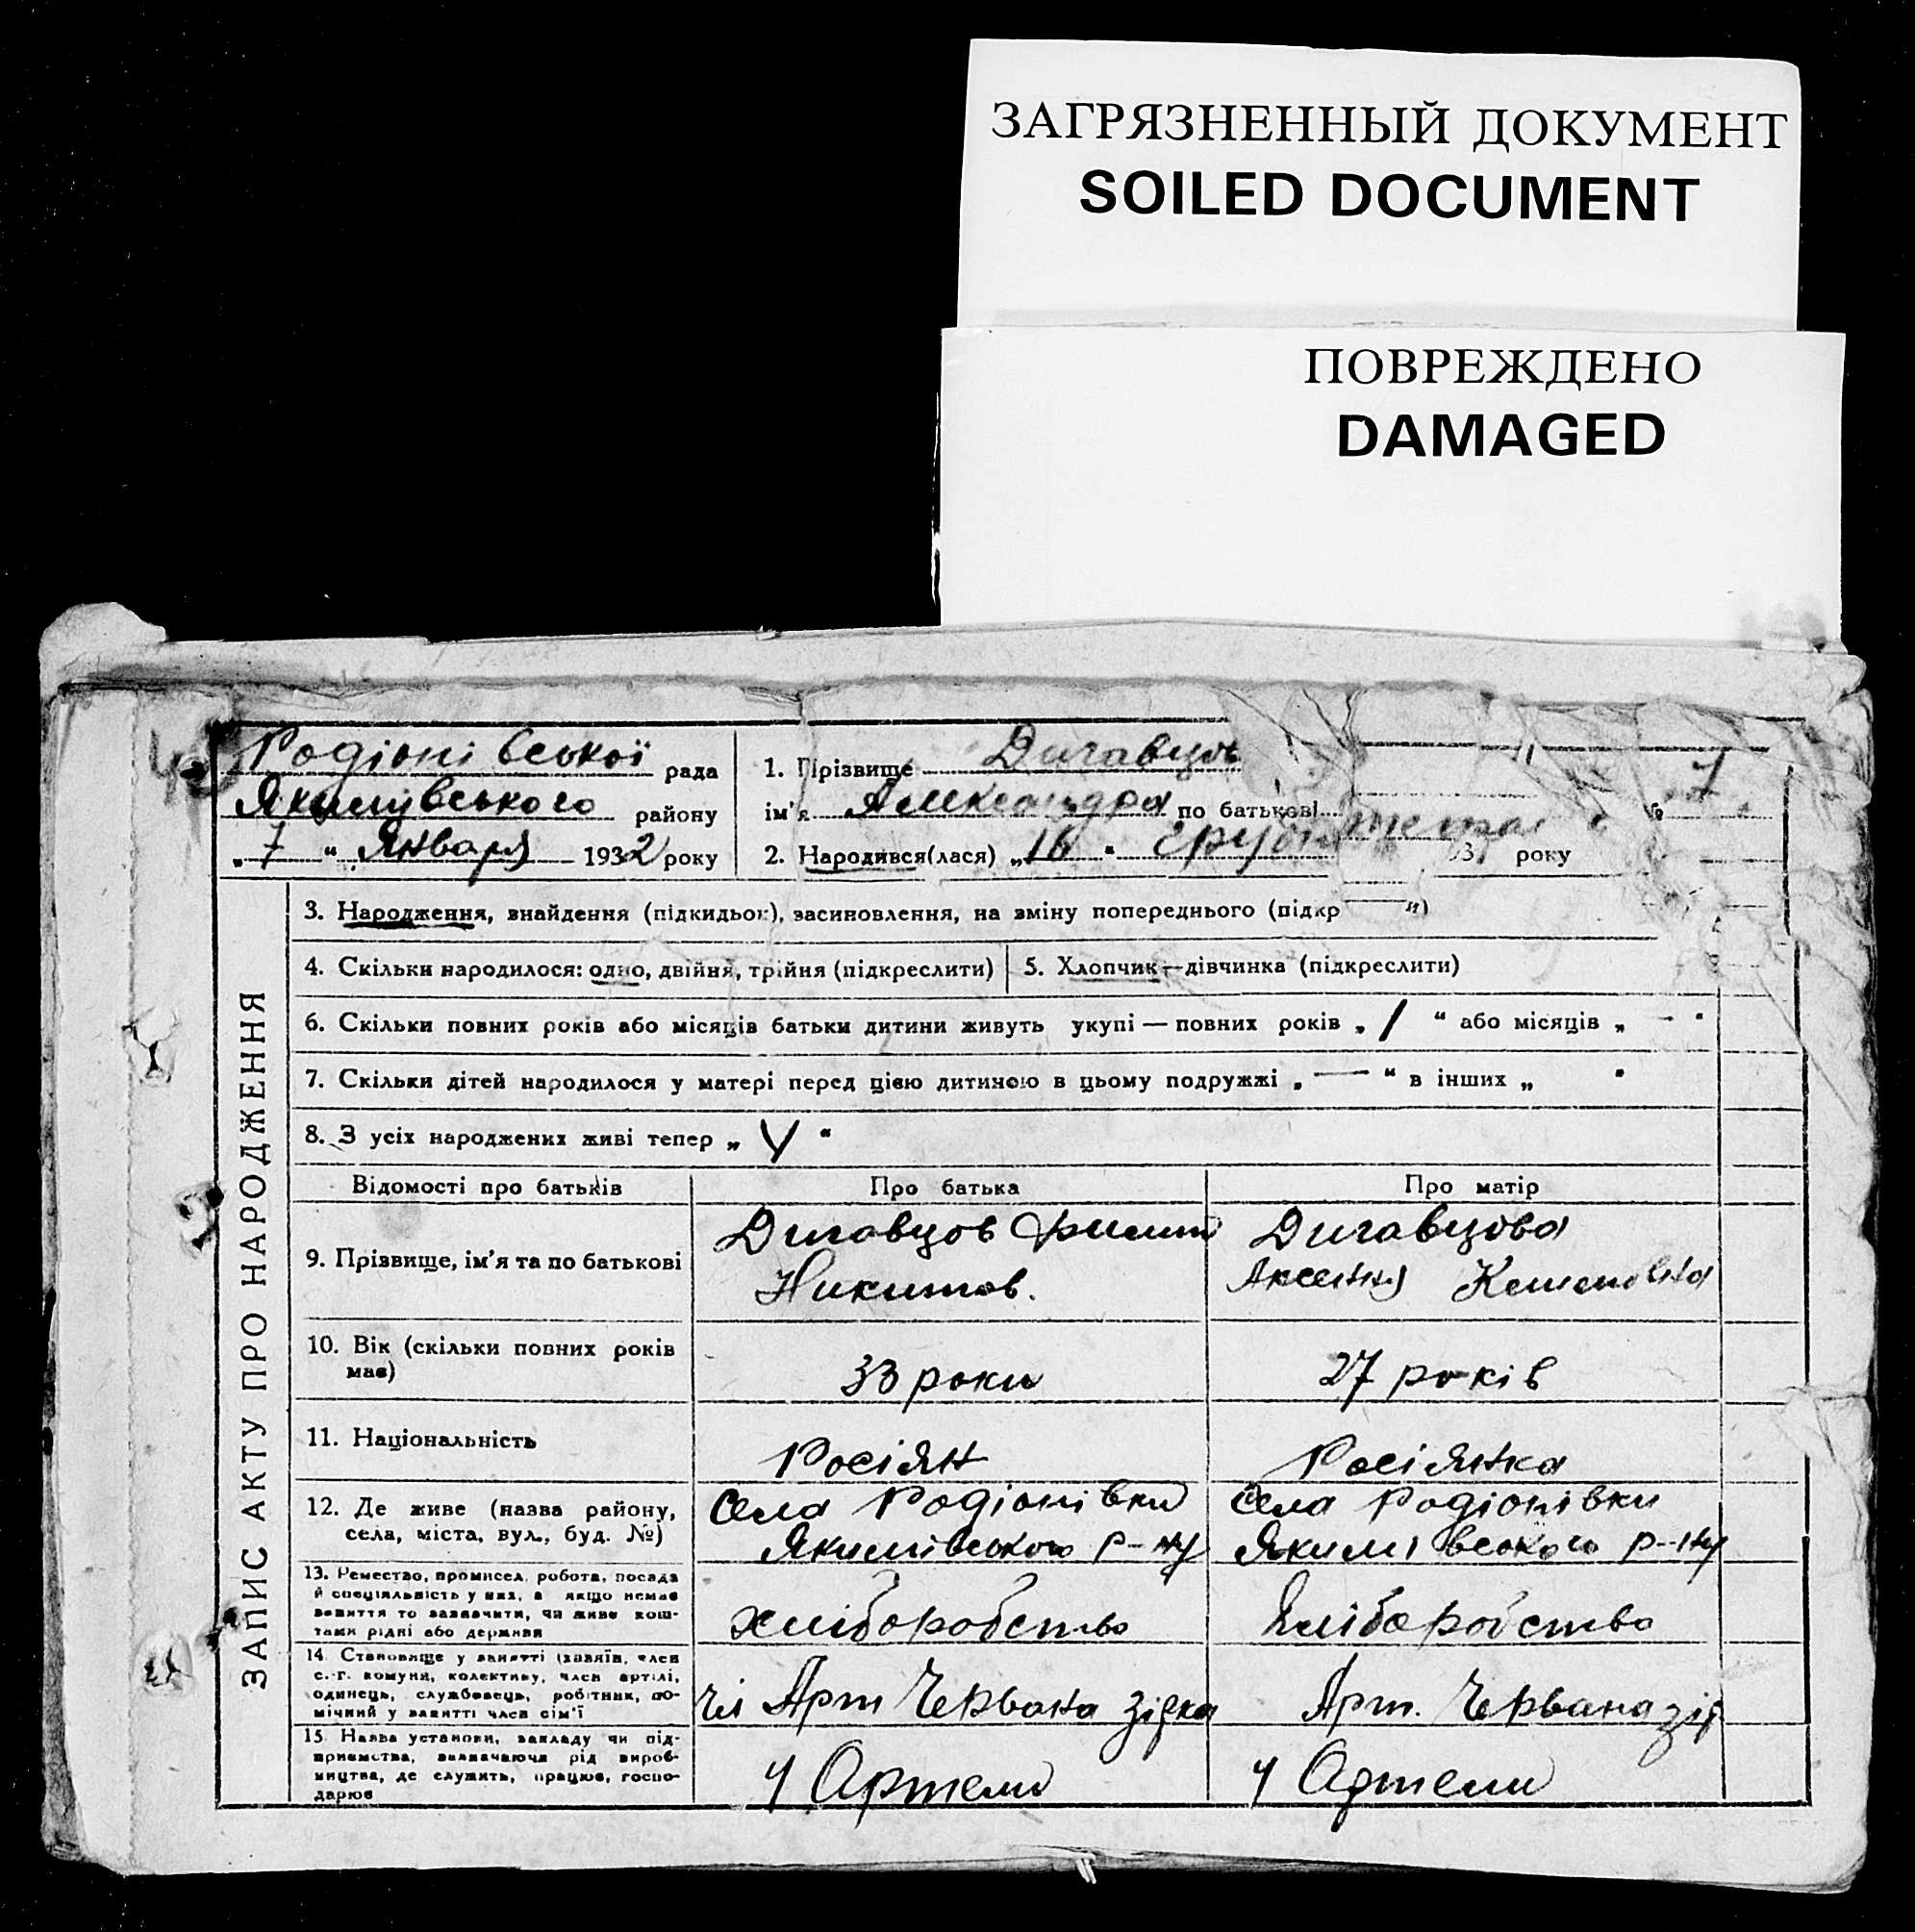 ЗАГРЯЗНЕННЫЙ ДОКУМЕНТ
SOILED DOCUMENT
ПОВРЕЖДЕНО
DAMAGED
Родіонівської рада
Якимівського району
„ 7 “ Января 1932 року
1. Прізвище
ім'я Александра по батькові
2. Народився(лася) „ 16 “ року
ЗАПИС АКТУ ПРО НАРОДЖЕННЯ
3. Народження, знайдення (підкидьок), засиновлення, на зміну попереднього
4. Скільки народилося: одно, двійня, трійня (підкреслити) 5. Хлопчик—дівчинка (підкреслити)
6. Скільки повних років або місяців батьки дитини живуть укупі — повних років „ / “ або місяців „ - “
7. Скільки дітей народилося у матері перед цією дитиною в цьому подружжі „ — “ в інших „ “
8. З усіх народжених живі тепер „ “
Відомості про батьків Про батька Про матір
9. Прізвище, ім'я та по батькові
Никитов.
10. Вік (скільки повних років має) 33 роки 27 років
11. Національність Росіян Росіянка
12. Де живе (назва району, села Родіонівки села Родіонівки
села, міста, вул., буд. №) Якимівського р-ну Якимівського р-ну
13. Ремество, промисел, робота, посада
й спеціяльність у них, а якщо немає
заняття то зазначити, чи живе кош-
тами рідні або держави хліборобство хліборобство
14. Становище у занятті (хазяїн, член
с.-г. комуни, колективу, член артілі,
одинець, службовець, робітник, по-
мічний у занятті член сім'ї чл Арт Червона зірка Арт. Червона зір
15. Назва установи, закладу чи під-
приємства, зазначаючи рід вироб-
ництва, де служить, працює, госпо-
дарює у Артели у Артели